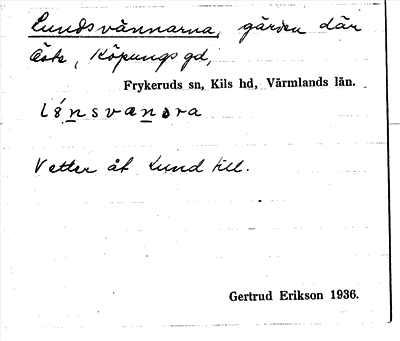 Lundsvännarna, gården där
Öste, Köpungs gd,
Frykeruds sn, Kils hd, Värmlands län.
lŏ́nsvænɔra
Vetter åt Lund till.
Gertrud Erikson 1936.